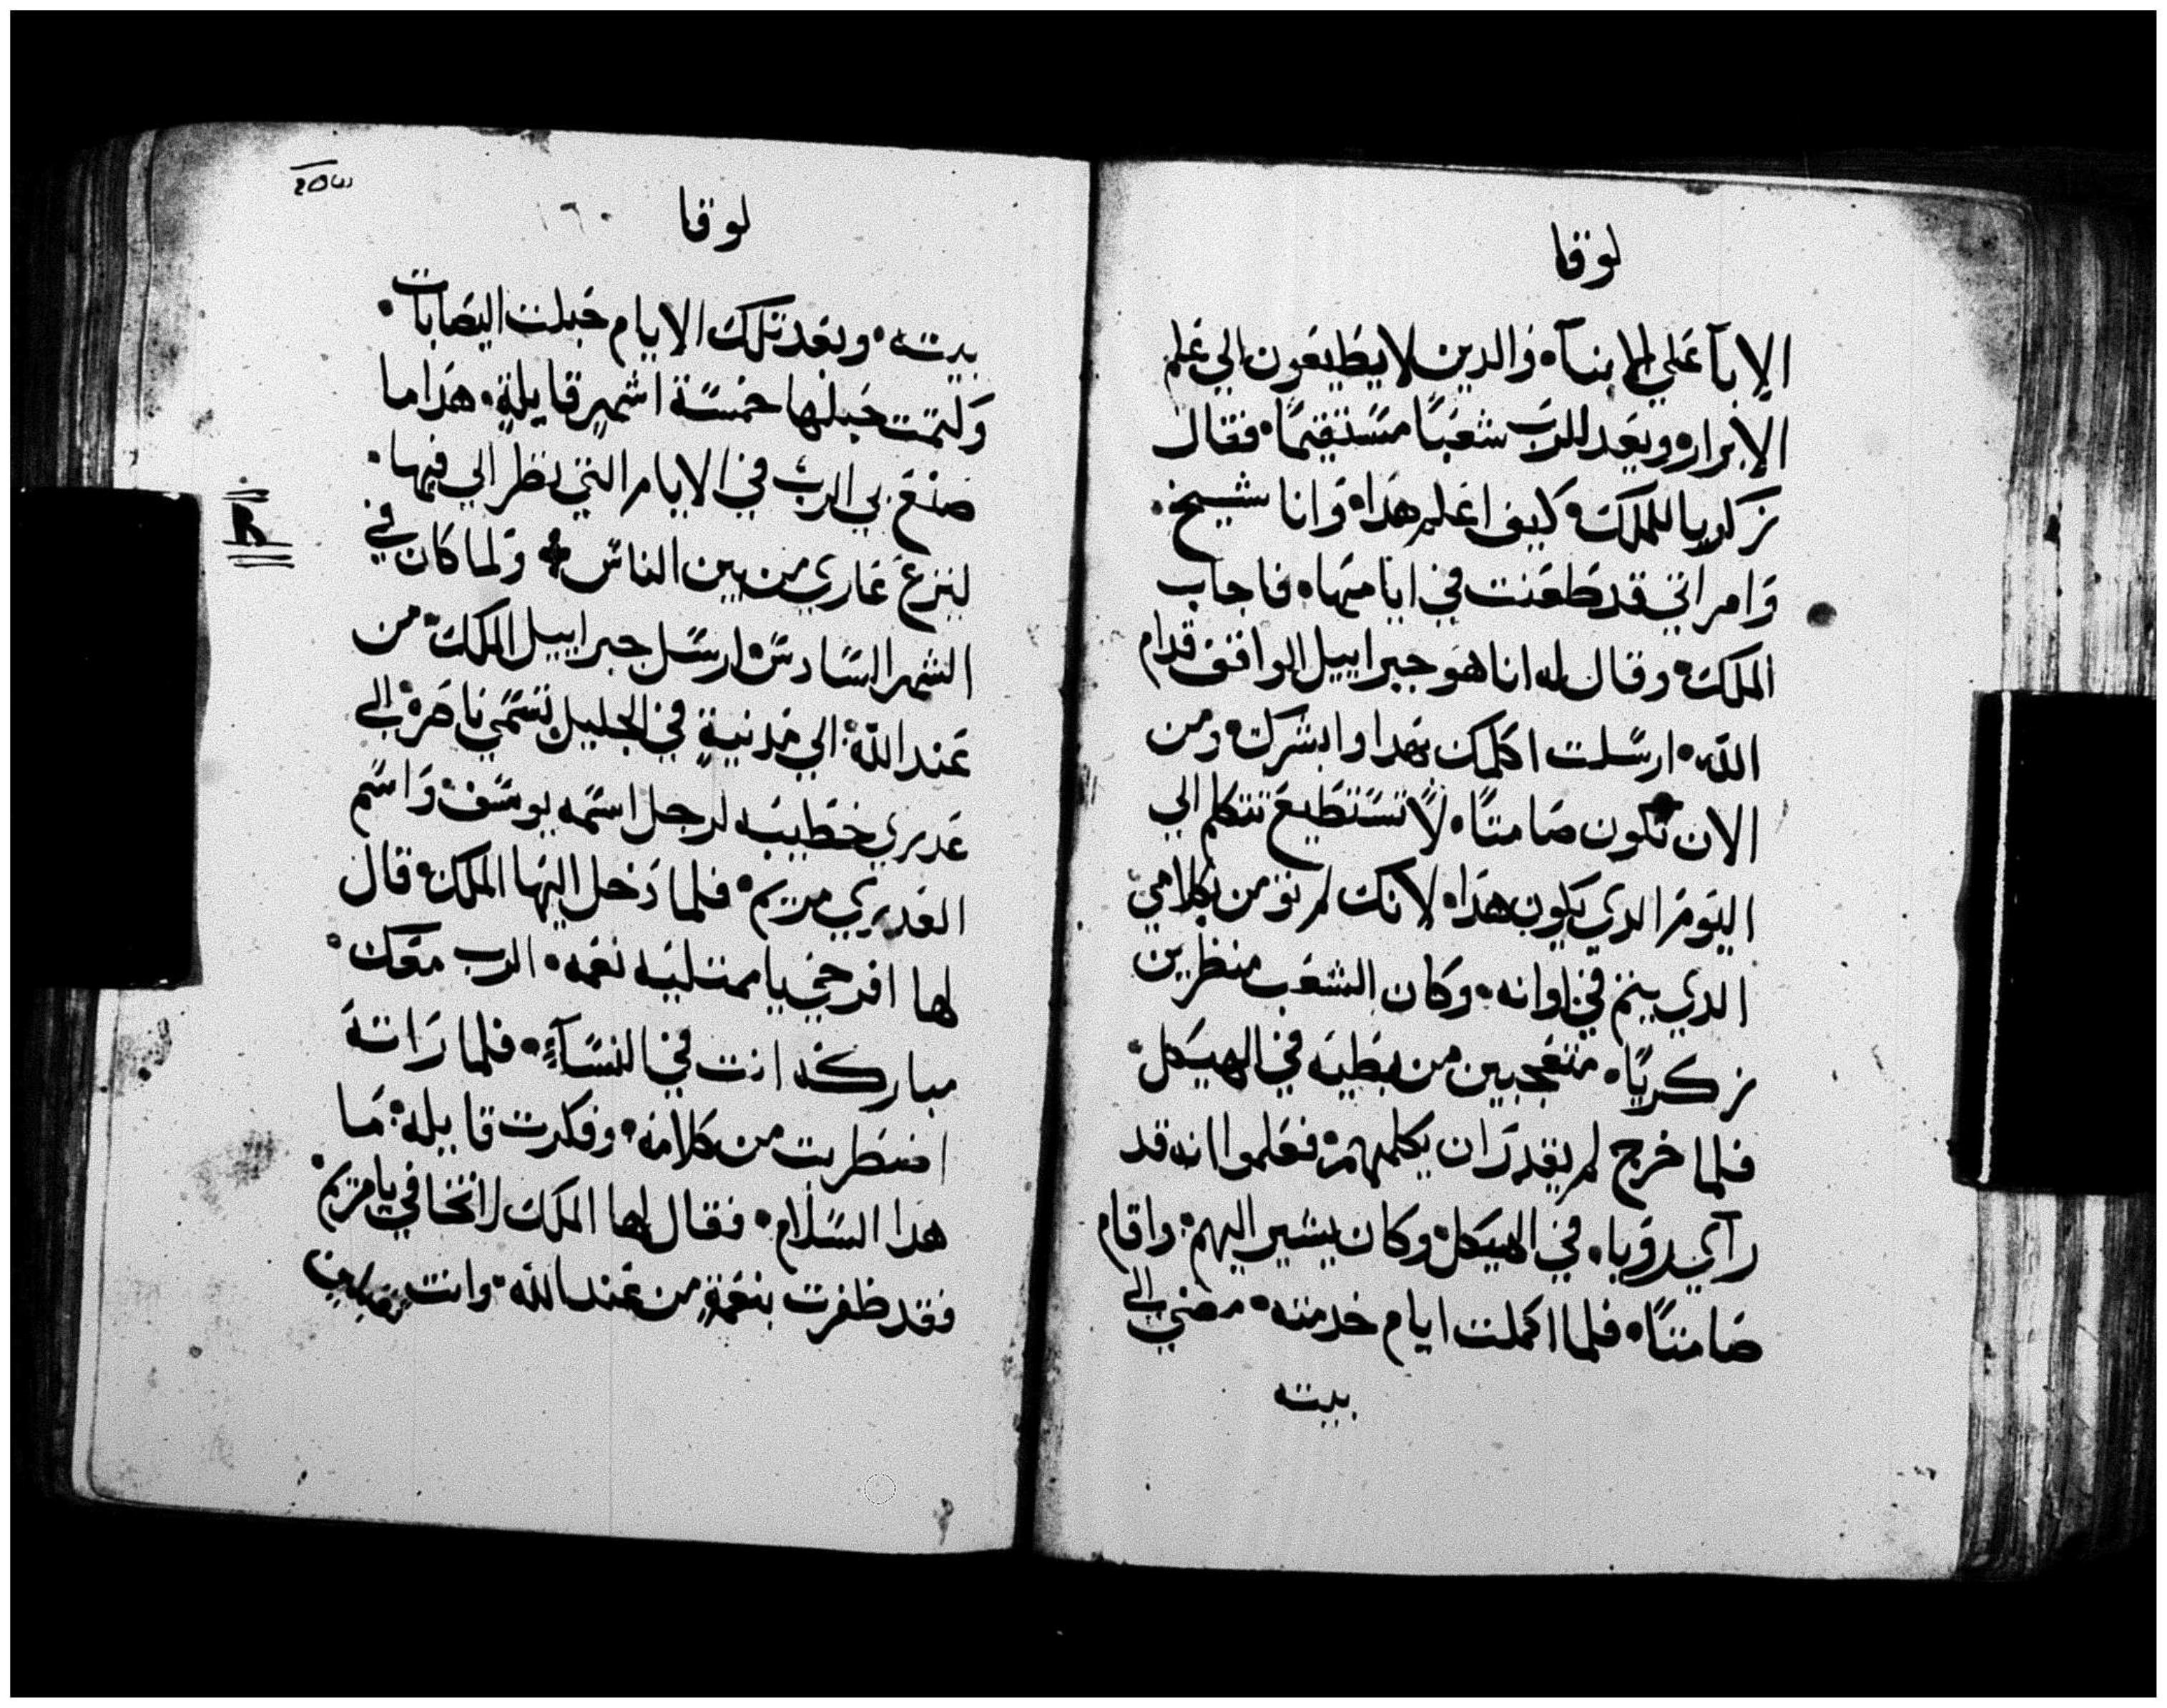 لوقا
الابآ علي الابنآ، والدين لا يطيعون الي علم
الابرار، ويعد للرب شعبًا مستقيمًا، فقال
زكريا للملاك، كيف اعلم هدا، وانا شيخ.
وامراتي قد طعنت في ايامها، فاجاب
الملاك، وقال له انا هو جبراييل الواقف قدام
الله، ارسلت اكلمك بهدا وابشرك، ومن
الان تكون صامتًا، لا تستطيع تتكلم الي
اليوم الدي يكون هدا، لانك لم تومن بكلامي
الدي يتم في اوانه، وكان الشعب منظرين
زكريا، متعجبين من بطيه في الهيكل.
فلما خرج لم يقدر ان يكلمهم، فعلموا انه قد
رآي رويا، في الهيكل، وكان يشير اليهم، واقام
صامتًا، فلما اكملت ايام خدمته، مضي الي
بيته
لوقا
١٦٠
بيته، وبعد تلك الايام حبلت اليصابات.
وكتمت حبلها خمسة اشهر قايلة، هدا ما
صنع بي الرب في الايام التي نظر الي فيها.
لينزع عاري من بين الناس ✤ ولما كان في
الشهر السادس، ارسل جبراييل الملاك، من
عند الله، الي مدنية في الجليل تسمي ناصرة، الي
عدري خطيبه لرجل اسمه يوسف، واسم
العدري مريم، فلما دخل اليها الملاك، قال
لها افرحي يا ممتليه نعمه، الرب معك.
مباركه انت في النسآء، فلما راته
اضطربت من كلامه، وفكرت قايله، ما
هدا السلام، فقال لها الملاك لا تخافي يا مريم.
فقد ظفرت بنعمة من عند الله، وانت تقبلين
R